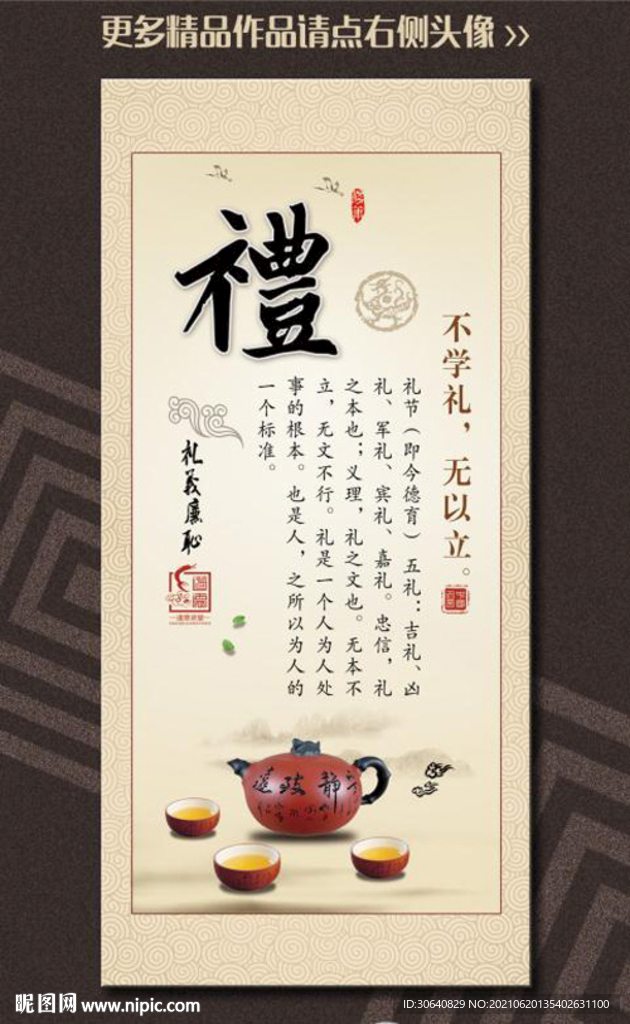 更多精品作品请点右侧头像 >>
禮
不学礼，无以立。
礼节（即今德育）五礼：吉礼、凶
礼、军礼、宾礼、嘉礼。忠信，礼
之本也；义理，礼之文也。无本不
立，无文不行。礼是一个人为人处
事的根本。也是人，之所以为人的
一个标准。
礼義廉恥
静
昵图网 www.nipic.com
ID:30640829 NO:20210620135402631100